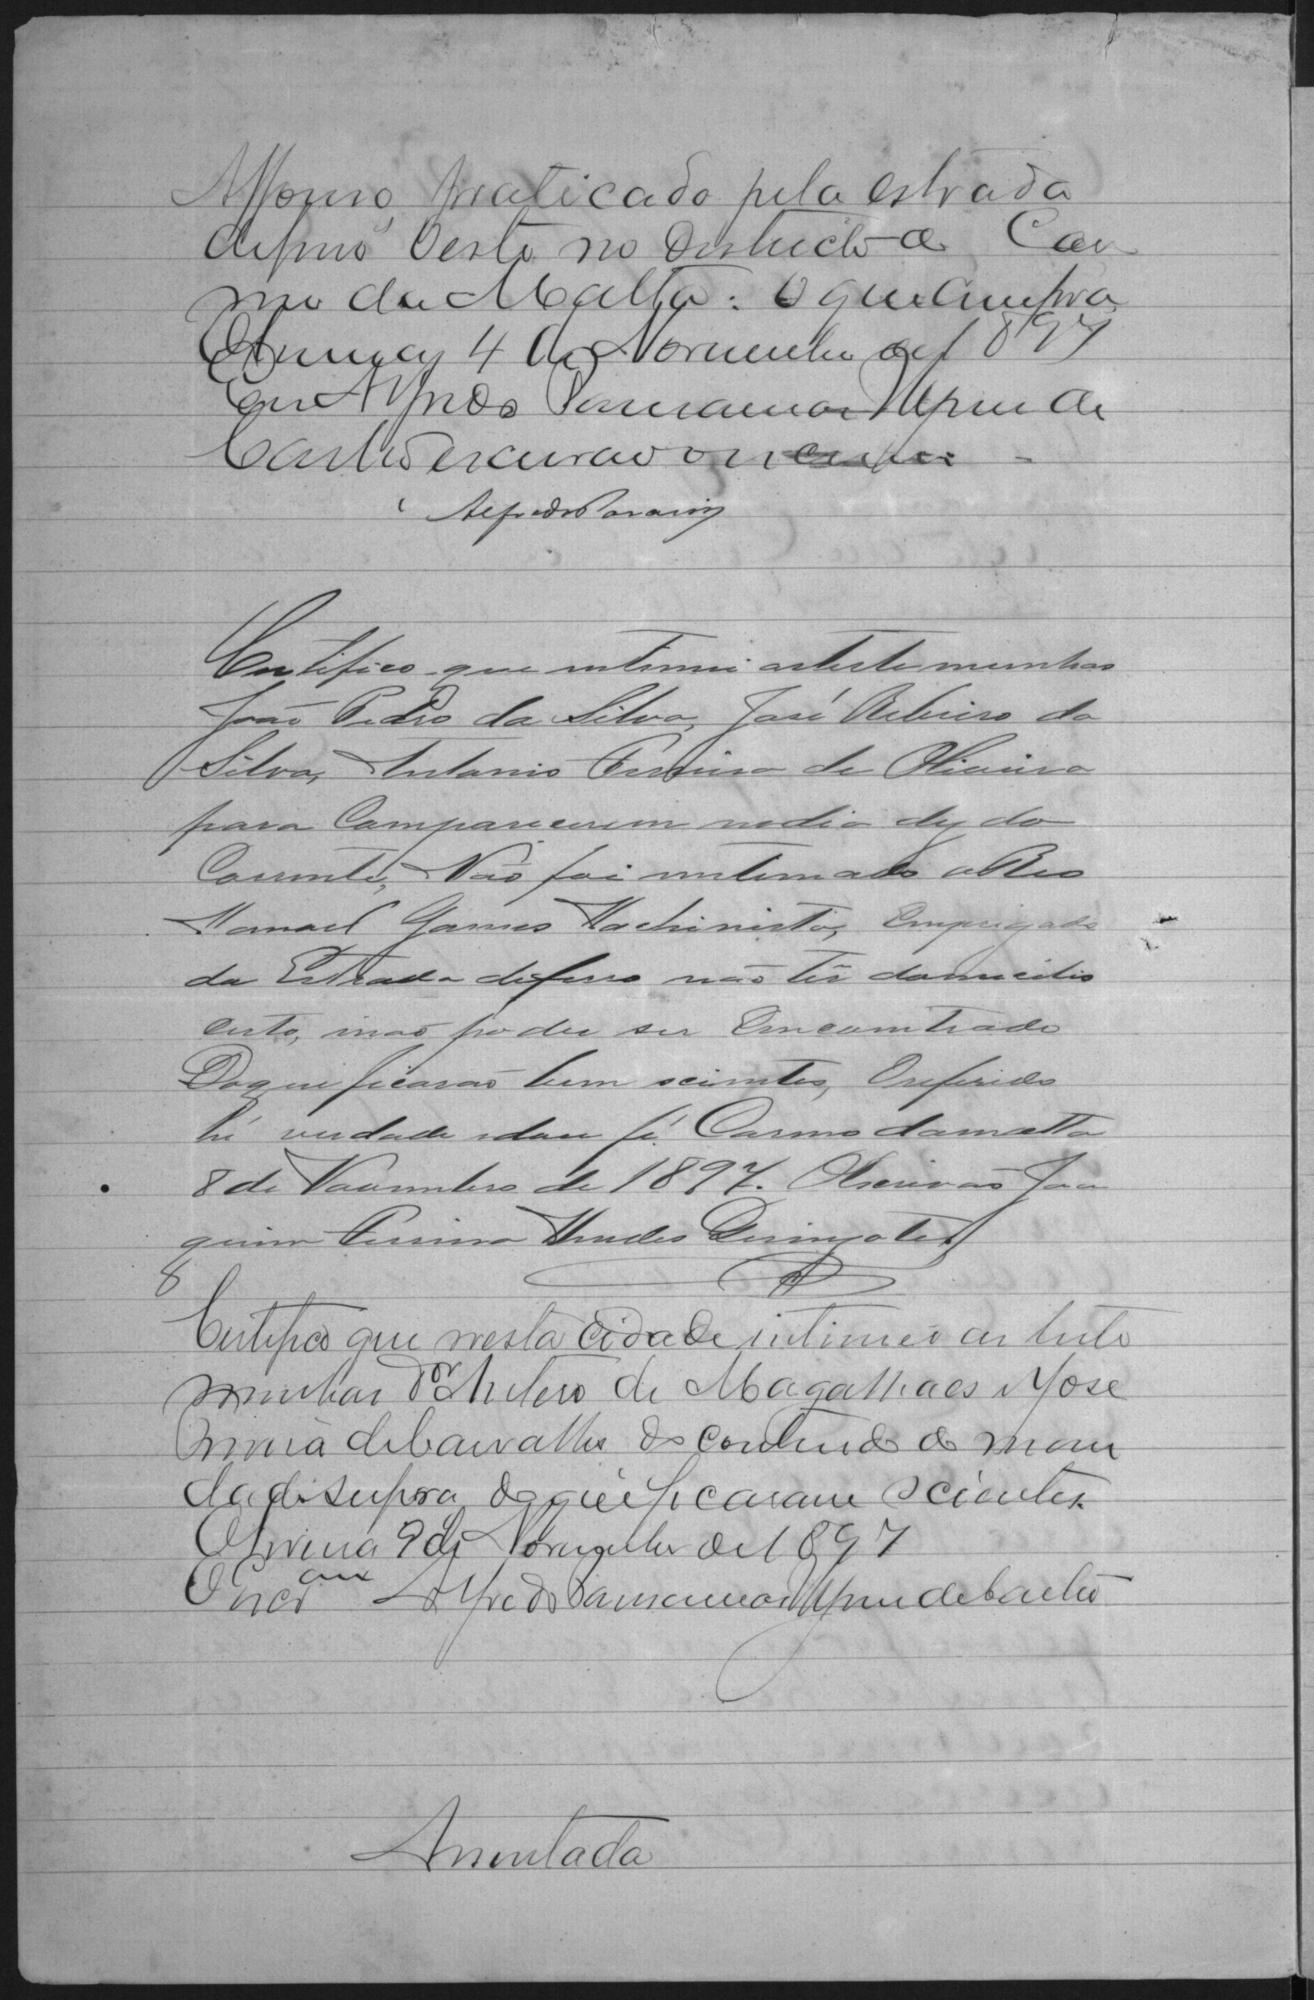 Affonso, praticado pela estrada
de ferro Oeste no Districto de Car
mo da Matta. O que cumpra
Oliveira 4 de Novembro de 1897
Eu Alfredo
Castro escrivão o escrevi
Alfredo
Certifico que intimei as testemunhas
João Pedro da Silva, José Ribeiro da
Silva, Antonio Ferreira de Oliveira
para Comparecerem no dia dez do
Corrente, Não foi intimado o Reo
Manoel Gomes Machinista, Empregado
da Estrada de ferro não ter domicilio
certo, i não poder ser Emcomtrado
Do que ficarão bem scientes, O referido
hé verdade e dou fé. Carmo da matta
8 de Novembro de 1897. O Escrivão Joa
quim Pereira Mendes
Certifico que nesta cidade intimei as teste
munhas Dor Antero de Magalhaes e José
de Carvalho do conteudo do man
dado supra do que ficaram scientes.
Oliveira 9 de Novembro de 1897
O Escram Alfredo de Castro
Ajuntada